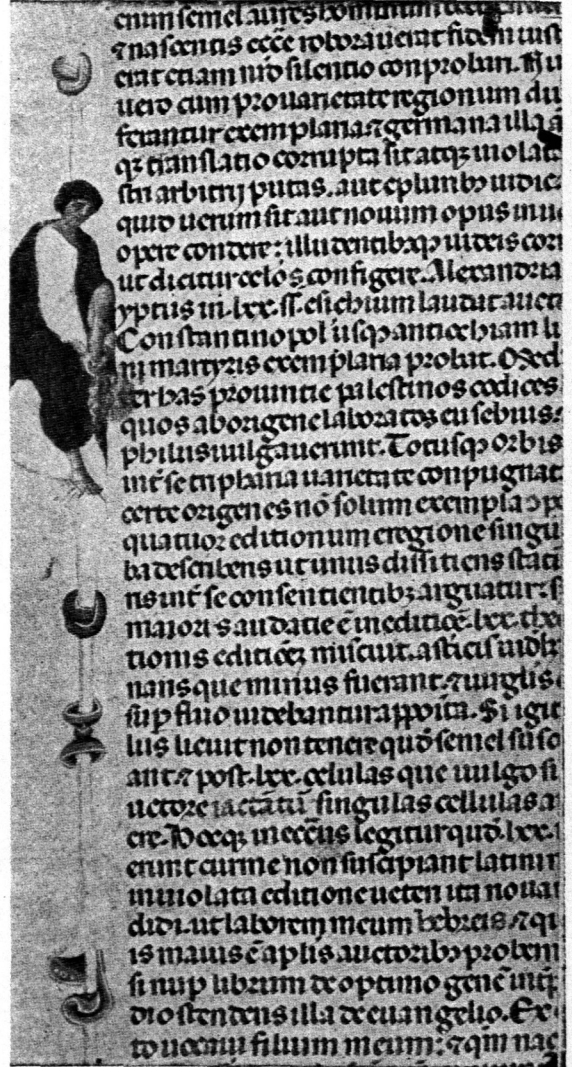 enim semel aures hominum
⁊ nascentis ecc̄e roborauerat fidem iust
erat etiam nr̄o silentio conprobari. Nu
uero cum pro uarietate regionum du
ferantur exemplaria ⁊ germana illa a
qꝫ translatio corrupta sit atqꝫ uiolata
stri arbitrij putas. aut e pluribꝫ iudic
quid uerum sit aut nouum opus in ue
opere condere: illudentibꝫqꝫ iudeis cor
ut dicitur oclos configere. Alexandria
yptus in .lxx. ss. esichium laudat auct
Constantinopol usqꝫ antiochiam lu
ni martyris exemplaria probat. Med
ter has prouintie palestinos codices
quos ab origene laboratos eusebius
philus uulgauerunt. Totusqꝫ orbis
int̄ se triphana uarietate conpugnat
certe origenes nō solum exempla ↄp
quatuor editionum e regione singu
ba describens ut unus dissitiens stati
ns int̄ se consentientibꝫ arguatur: s
maioris audatie ē in editiōe .lxx. theo
tionis editiōeꝫ miscuit. asticis uidelꝫ
nans que minus fuerant. ⁊ uirglis
sup fluo uidebantur appoita. Si igit
luis licuit non tenere quod semel susc
ant. ⁊ post .lxx. celulas que uulgo si
uctore iactātū singulas cellulas a
ere. Hocqꝫ in ecc̄iis legitur quod .lxx.
erunt cur me non suscipiant latini
inuiolata editione ueteri ita nouam
didi. ut laborem meum hebreis. ⁊ q
is maius ē aplis auctoribꝫ probem
si nup librum de optimo genē int̄p
dio stendens illa de euangelio. Ex
to uocaui filium meum: ⁊ qm̄ naz